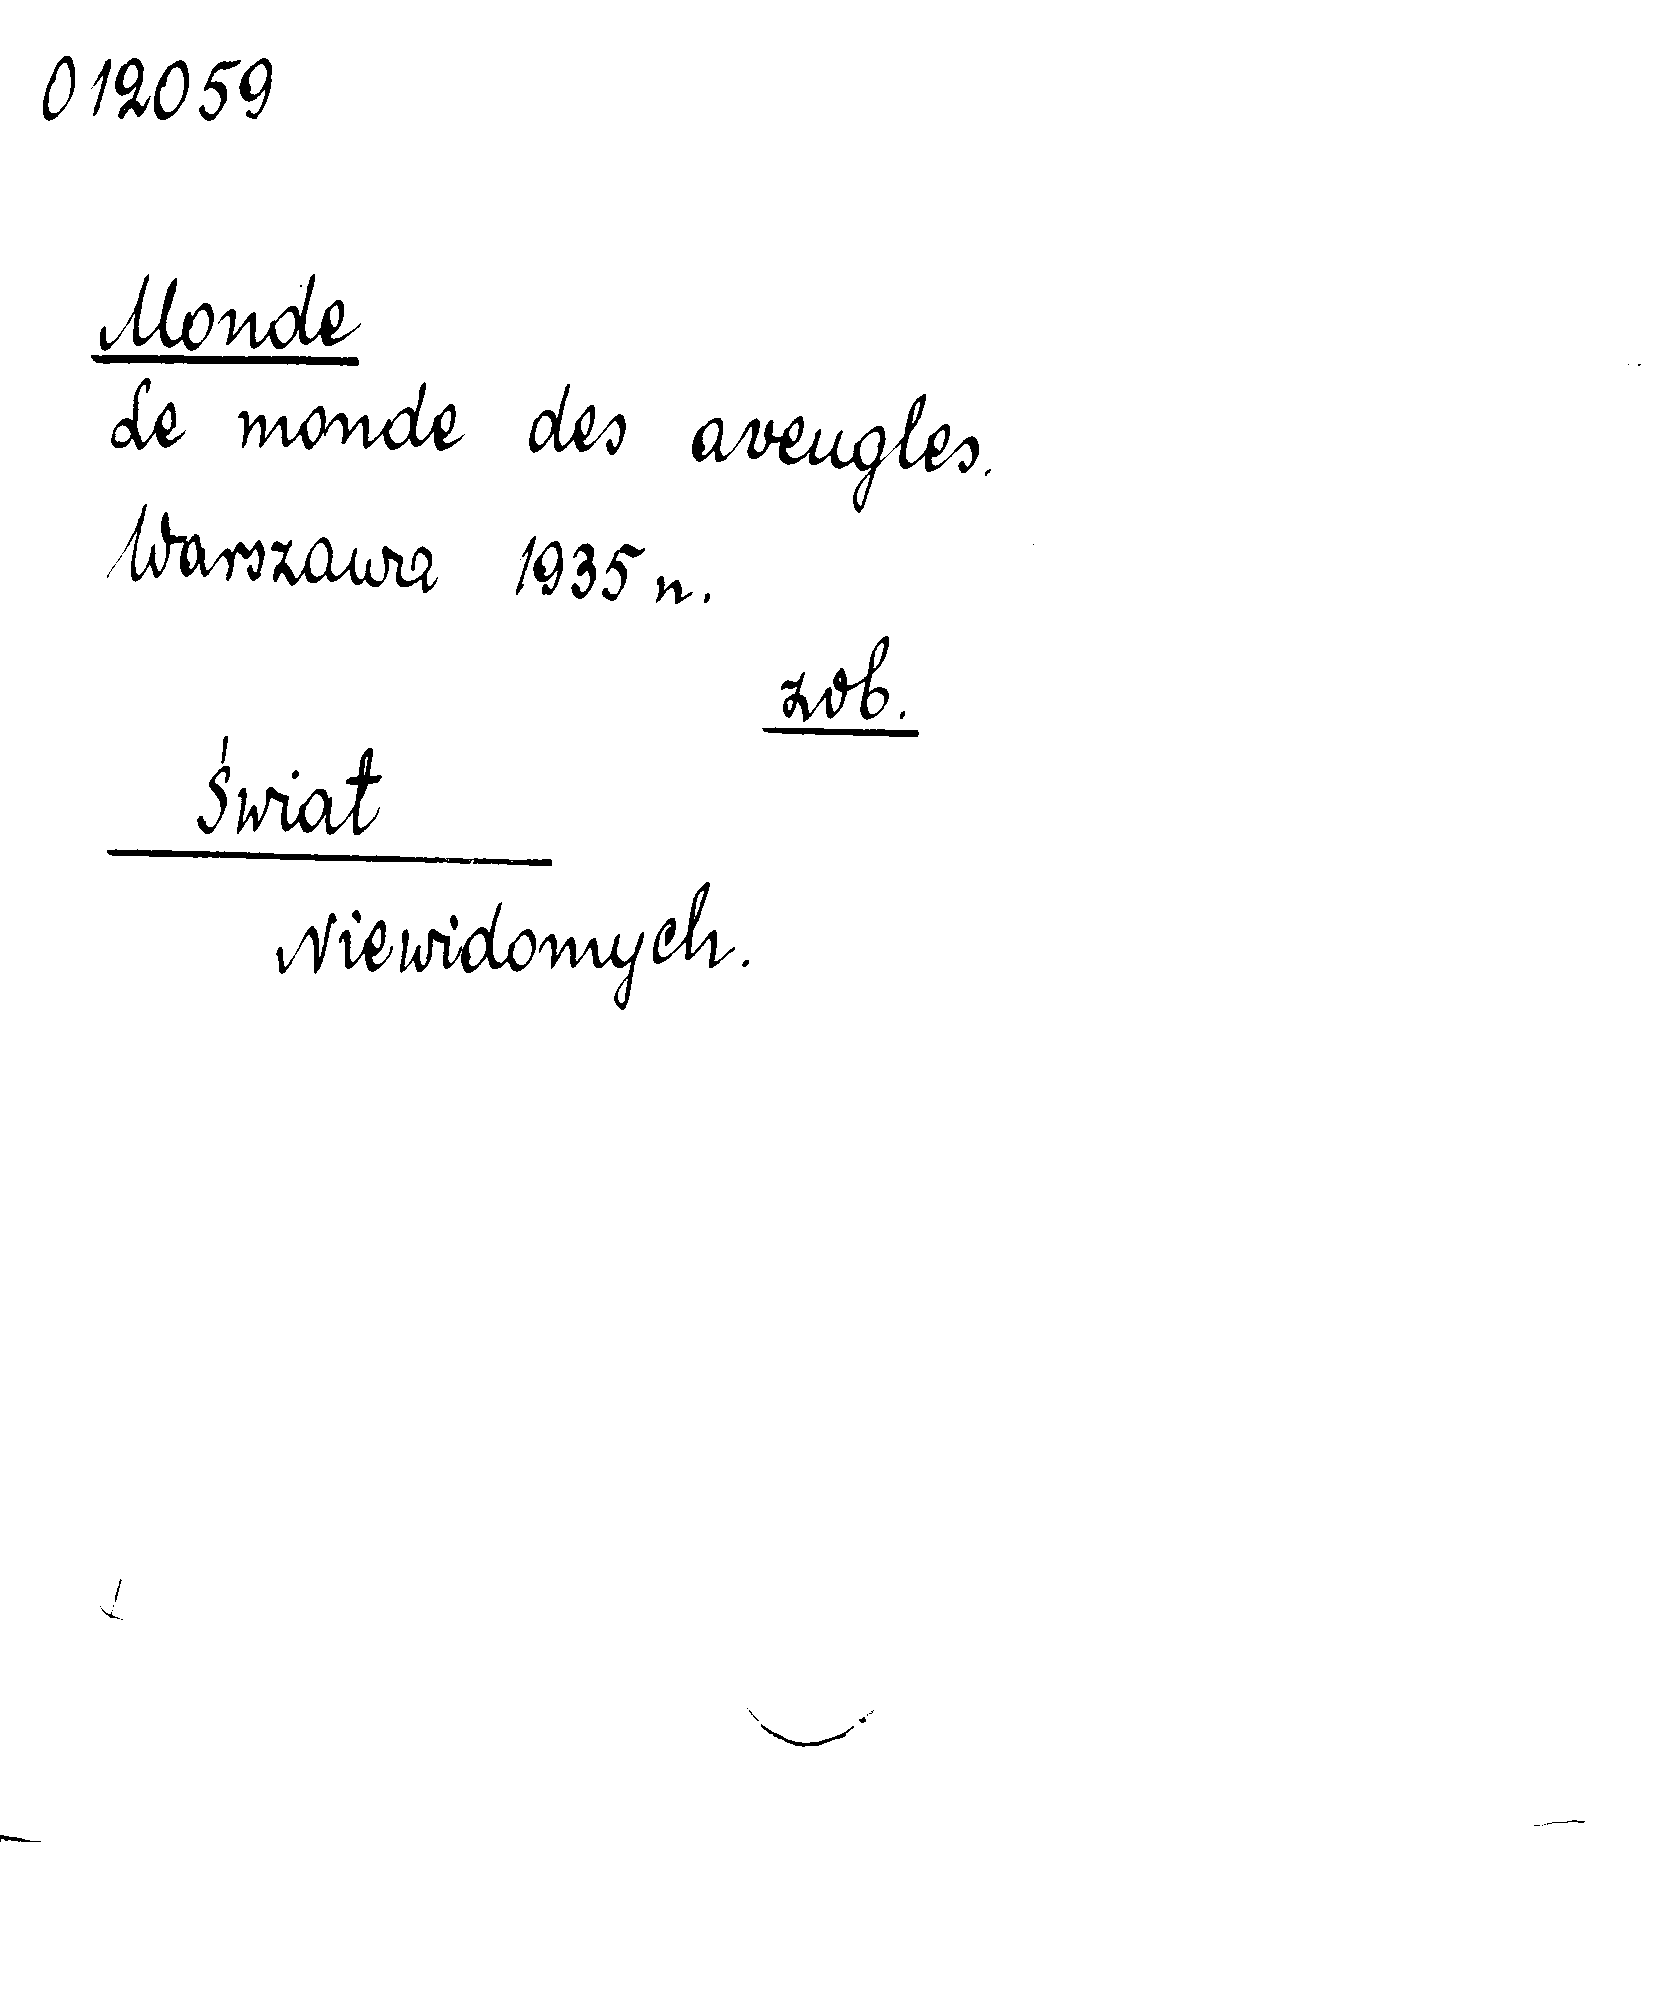 012059
Monde
Le monde des aveugles.
Warszawa 1935 n.
zob.
Świat
Niewidomych.